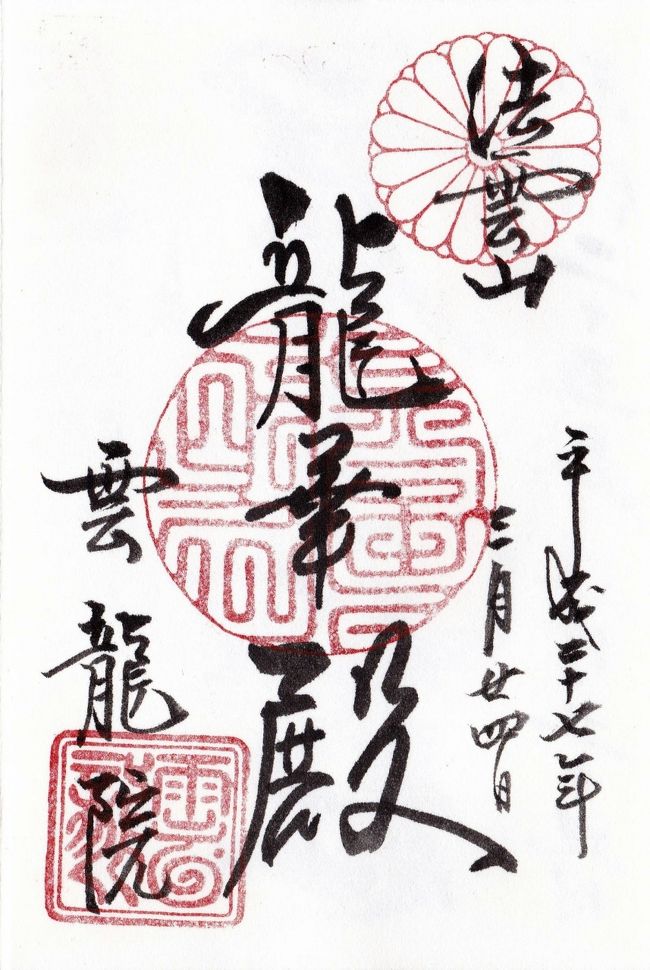 法雲山
平成二十七年
三月廿四日
龍華殿
雲龍院